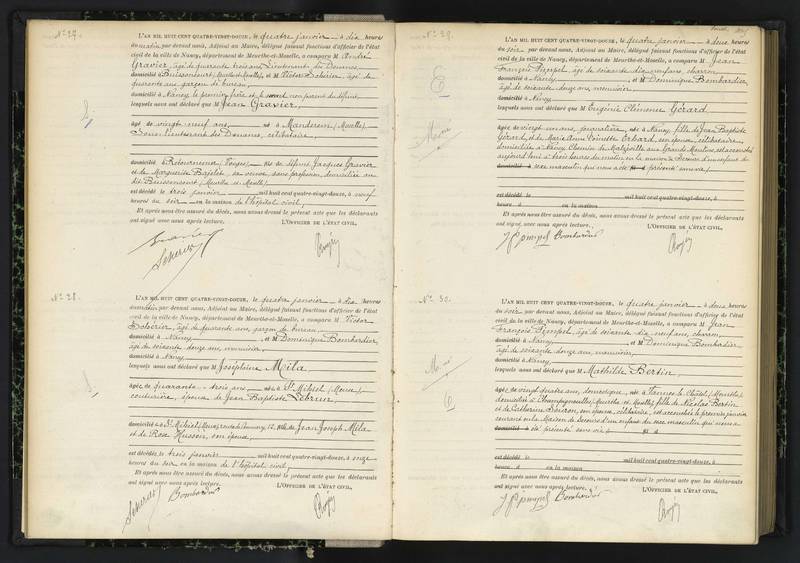 N° 27.
L'AN MIL HUIT CENT QUATRE-VINGT-DOUZE, le quatre janvier à dix heures
du matin par devant nous, Adjoint au Maire, délégué faisant fonctions d'officier de l'état
civil de la ville de Nancy, département de Meurthe-et-Moselle, a comparu M André
Gravier, âgé de quarante trois ans, Lieutenant des Douanes,
domicilié à Buissoncourt (Meurthe & Moselle), et M Victor
âgé de
quarante ans, garçon de bureau,
domicilié à Nancy, le premier frère et le second non parent du défunt
lesquels nous ont déclaré que M Jean Gravier,
âgé de vingt neuf ans, né à Manderen (Moselle),
Sous-Lieutenant des Douanes, célibataire,
domicilié à Retournemer (Vosges), fils de défunt Jacques Gravier
et de Marguerite sa veuve, sans profession, domiciliée au
dit Buissoncourt (Meurthe et Moselle)
est décédé le trois janvier mil huit cent quatre-vingt-douze, à neuf
heures du soir en la maison de l'hôpital civil,
Et après nous être assuré du décès, nous avons dressé le présent acte que les déclarants
ont signé avec nous après lecture. L'OFFICIER DE L'ÉTAT CIVIL,
N° 28.
L'AN MIL HUIT CENT QUATRE-VINGT-DOUZE, le quatre janvier à dix heures
du matin par devant nous, Adjoint au Maire, délégué faisant fonctions d'officier de l'état
civil de la ville de Nancy, département de Meurthe-et-Moselle, a comparu M Victor
âgé de quarante ans, garçon de bureau,
domicilié à Nancy, et M Dominique Bombardier,
âgé de soixante douze ans, menuisier,
domicilié à Nancy,
lesquels nous ont déclaré que M Joséphine Mila
âgée de quarante-trois ans, née à St Mihiel (Meuse),
couturière, épouse de Jean Baptiste Lebrun,
domiciliée à St Mihiel (Meuse) fille de Jean Joseph Mila
et de Rose Husson, son épouse,
est décédée le trois janvier mil huit cent quatre-vingt-douze, à onze
heures du soir en la maison de l'hôpital civil,
Et après nous être assuré du décès, nous avons dressé le présent acte que les déclarants
ont signé avec nous après lecture. L'OFFICIER DE L'ÉTAT CIVIL,
Bombardier
N° 29.
L'AN MIL HUIT CENT QUATRE-VINGT-DOUZE, le quatre janvier à deux heures
du soir par devant nous, Adjoint au Maire, délégué faisant fonctions d'officier de l'état
civil de la ville de Nancy, département de Meurthe-et-Moselle, a comparu M Jean
François Pimpel, âgé de soixante dix neuf ans, charron,
domicilié à Nancy, et M Dominique Bombardier
âgé de soixante douze ans, menuisier,
domicilié à Nancy,
lesquels nous ont déclaré que M Eugénie Clémence Gérard
âgée de vingt un ans, journalière, née à Nancy, fille de Jean Baptiste
Gérard, et de Marie Anne son épouse, célibataire,
domiciliée à Nancy, Chemin de Malzéville aux Grands Moulins, est accouchée
aujourd'hui à trois heures du matin en la maison de Secours d'un enfant du
domicilié à sexe masculin qui nous a été présenté sans vie,
est décédé le mil huit cent quatre-vingt-douze, à
heure à en la maison
Et après nous être assuré du décès, nous avons dressé le présent acte que les déclarants
ont signé avec nous après lecture. L'OFFICIER DE L'ÉTAT CIVIL,
Bombardier
N° 30.
L'AN MIL HUIT CENT QUATRE-VINGT-DOUZE, le quatre janvier à deux heures
du soir par devant nous, Adjoint au Maire, délégué faisant fonctions d'officier de l'état
civil de la ville de Nancy, département de Meurthe-et-Moselle, a comparu M Jean
François Pimpel, âgé de soixante dix neuf ans, charron,
domicilié à Nancy, et M Dominique Bombardier
âgé de soixante douze ans, menuisier,
domicilié à Nancy,
lesquels nous ont déclaré que M Mathilde Bertin
âgée de vingt quatre ans, domestique, née à Vannes le Châtel (Meurthe)
domiciliée à Champigneulles (Meurthe et Moselle), fille de Nicolas Bertin
et de Catherine son épouse, célibataire, est accouchée le premier janvier
courant en la Maison de Secours d'un enfant du sexe masculin qui nous a
domicilié à été présenté sans vie
est décédé le mil huit cent quatre-vingt-douze, à
heure à en la maison
Et après nous être assuré du décès, nous avons dressé le présent acte que les déclarants
ont signé avec nous après lecture. L'OFFICIER DE L'ÉTAT CIVIL,
Bombardier